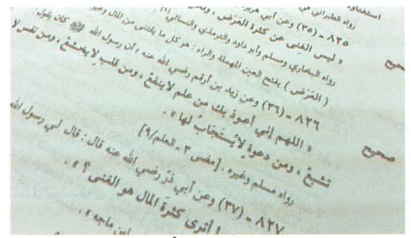 رواه الطبراني في
٨٢٥ - (٣٥) وعن أبي هريرة
« ليس الغنى عن كثرة العَرَض ،
رواه البخاري ومسلم وأبو داود والترمذي والنسائي
( العَرَض ) بفتح العين المهملة والراء : هو كل ما يقتنى من المال وغيره
صحيح
٨٢٦ - (٣٦) وعن زيد بن أرقم رضي الله عنه ؛ أن رسول الله ﷺ كان يقول :
« اللهم إني أعوذ بك من علم لا ينفع ، ومن قلب لا يخشع ، ومن نفس لا
تشبع ، ومن دعوةٍ لا يُستجابُ لها » .
رواه مسلم وغيره . [مضى ٣- العلم/٩]
صحيح
٨٢٧ - (٣٧) وعن أبي ذرّ رضي الله عنه قال : قال لي رسول الله
أترى كثرة المال هو الغنى ؟ » .
ابن ماجه